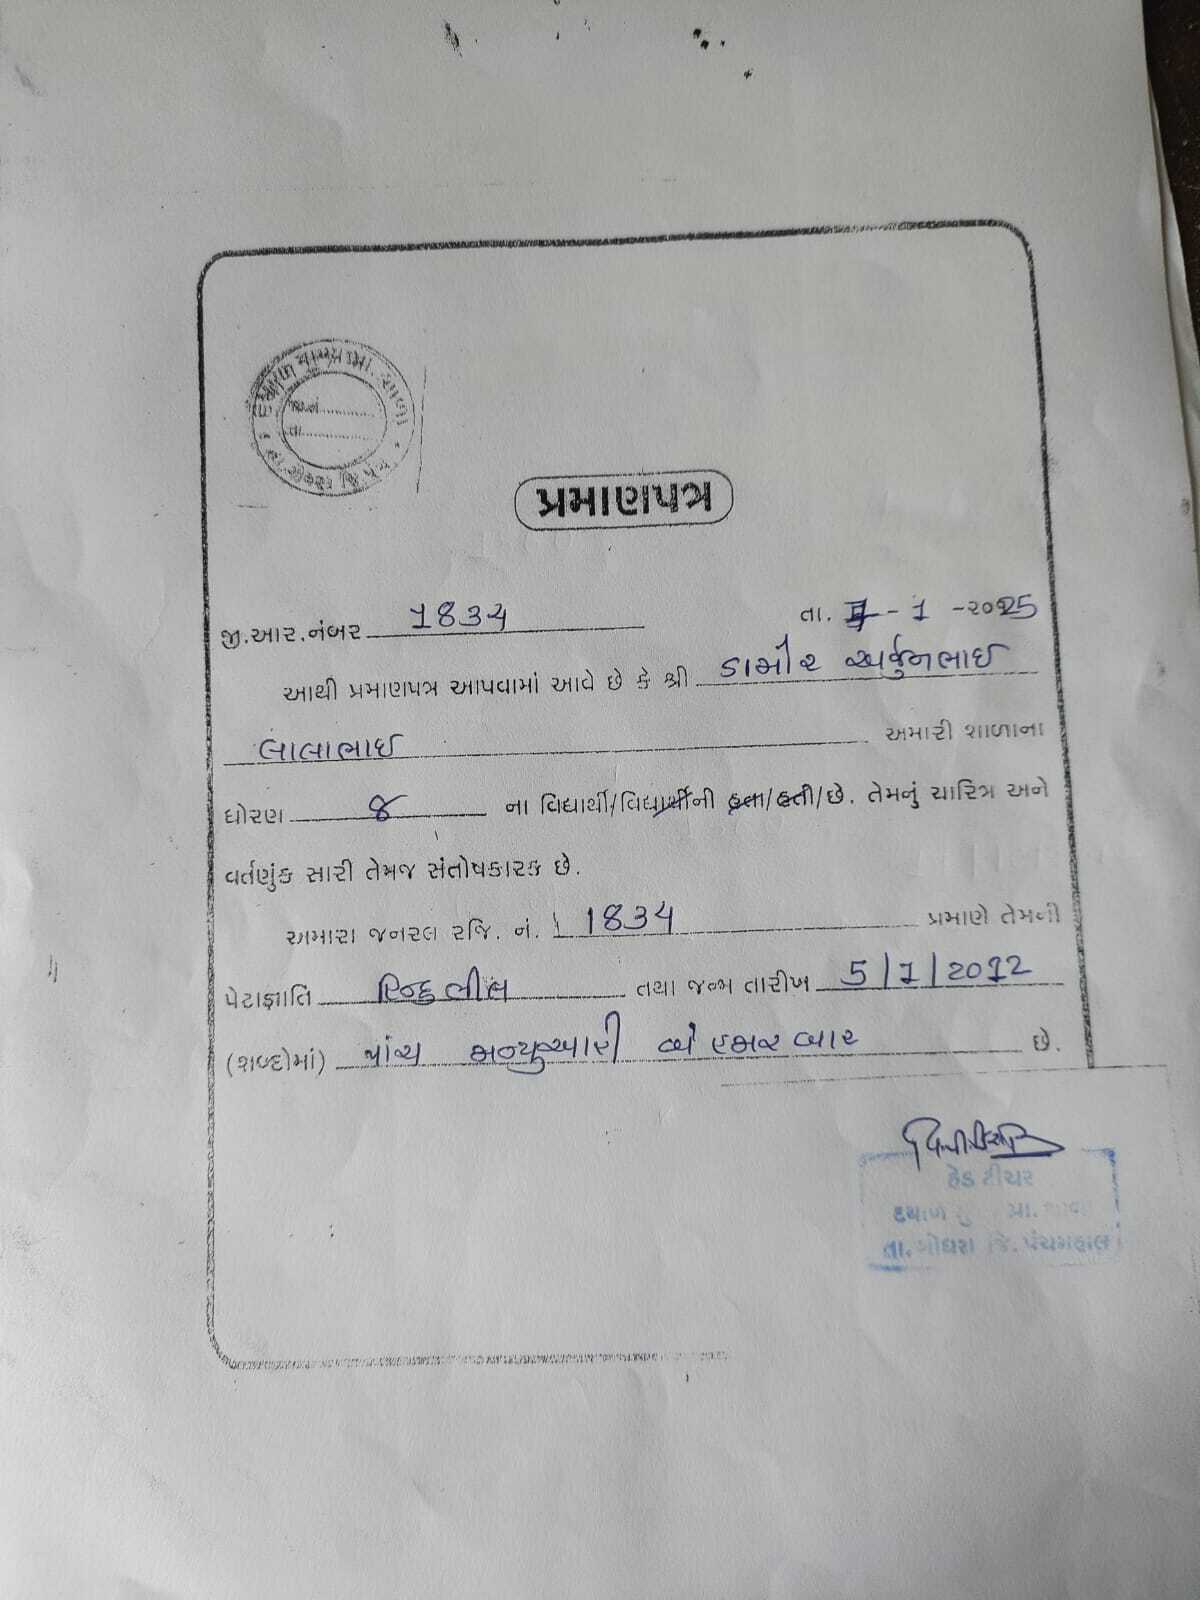 પ્રમાણપત્ર
જી.આર.નંબર 1834 તા. - 1 -૨૦25
આથી પ્રમાણપત્ર આપવામાં આવે છે કે શ્રી ડામોર અર્જુનભાઈ
લાલાભાઈ અમારી શાળાના
ધોરણ ૪ ના વિદ્યાર્થી/વિદ્યાર્થીની હતા/હતી/છે. તેમનું ચારિત્ર અને
વર્તણુંક સારી તેમજ સંતોષકારક છે.
અમારા જનરલ રજિ. નં. 1834 પ્રમાણે તેમની
પેટાજ્ઞાતિ હિન્દુ ભીલ તથા જન્મ તારીખ 5/1/2012
(શબ્દોમાં) પાંચ જાન્યુઆરી બે હજાર બાર છે.
હેડ ટીચર
દયાળ પ્રા. શાળા
તા. ગોધરા જિ. પંચમહાલ